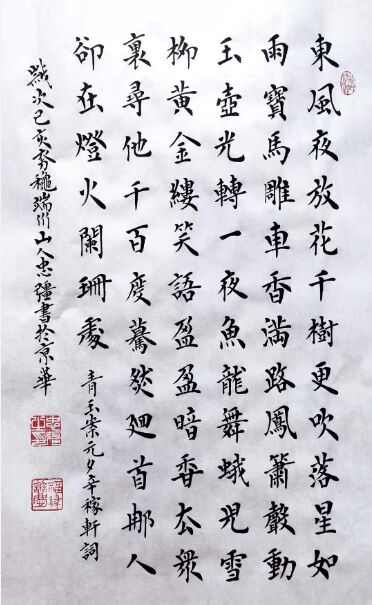 東風夜放花千樹更吹落星如
雨寶馬雕車香滿路鳳簫聲動
玉壺光轉一夜魚龍舞蛾兒雪
柳黃金縷笑語盈盈暗香去眾
裏尋他千百度驀然迴首那人
卻在燈火闌珊處
青玉案元夕辛稼軒詞
歲次己亥穐端州山人忠彊書於京華